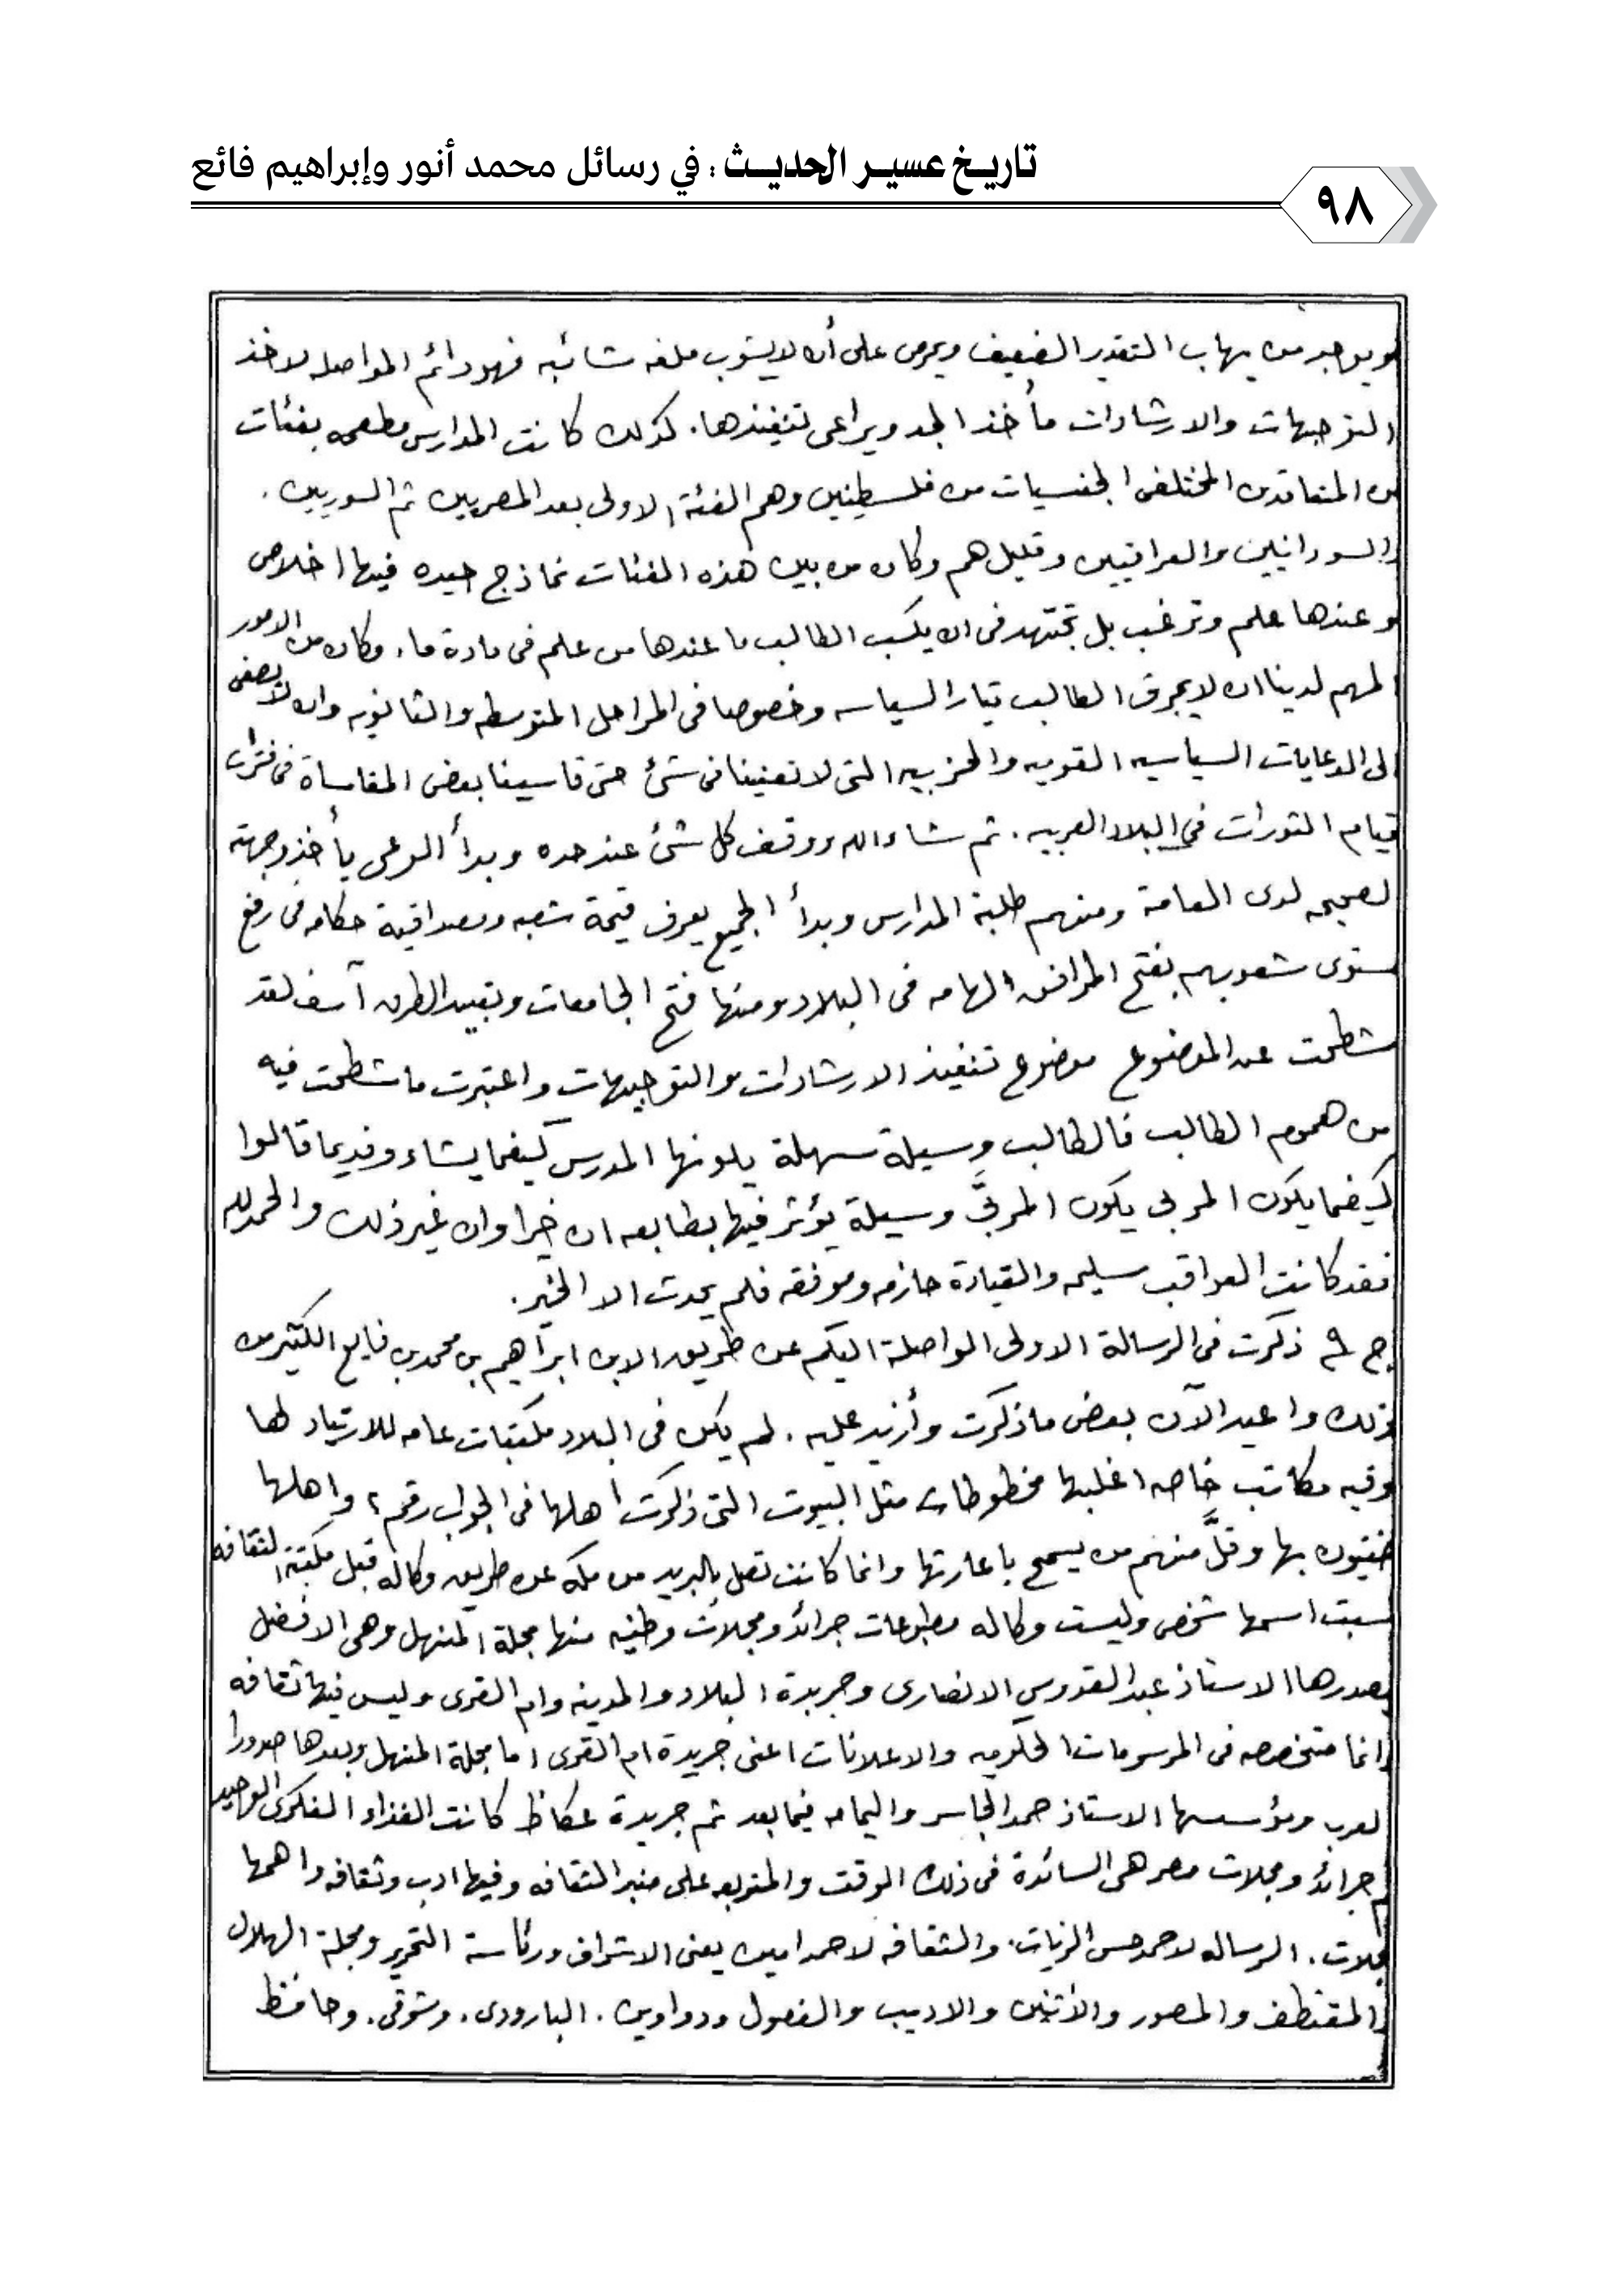 تاريخ عسير الحديث : في رسائل محمد أنور وإبراهيم فائع
٩٨
ويوجد من يهاب التقدير الضعيف ويحرص على أن لا يشوب ملفه شائبه فهو دائم المواصله لاخذ
التوجيهات والارشادات مأخذ الجد ويراعى تنفيذها. كذلك كانت المدارس مطعمه بفئات
من المتعاقدين المختلفى الجنسيات من فلسطينين وهم الفئة الاولى بعد المصريين ثم السوريين.
والسودانيين والعراقيين وقليل هم وكان من بين هذه الفئات نماذج جيده فيها اخلاص
وعندها علم وترغب بل تجتهد فى ان يكسب الطالب ما عندها من علم فى مادة ما. وكان من الامور
المهم لدينا ان لا يجرف الطالب تيار السياسه وخصوصا فى المراحل المتوسطه والثانويه وان لا يصغى
الى الدعايات السياسيه القوميه والحزبيه التى لا تعنينا فى شئ حتى قاسينا بعض المقاساة فى فترات
قيام الثورات في البلاد العربيه. ثم شاء الله ووقف كل شئ عند حده وبدأ الوعى يأخذ وجهته
لصحيحه لدى العامة ومنهم طلبة المدارس وبدأ الجميع يعرف قيمة شعبه ومصداقية حكامه فى رفع
ستوى شعوبهم بفتح المرافق الهامه فى البلاد ومنها فتح الجامعات وتعبيد الطرق آسف لقد
شطحت عن الموضوع موضوع تنفيذ الارشادات والتوجيهات واعتبرت ما شطحت فيه
من هموم الطالب فالطالب وسيلة سهلة يلونها المدرس كيفما يشاء وقديما قالوا
كيفما يكون المربى يكون المربَّى وسيلة يؤثر فيها بطابعه ان خيرا وان غير ذلك والحمد لله
فقد كانت العواقب سليمه والقيادة حازمه وموفقه فلم يحدث الا الخير.
ج ٩ ذكرت فى الرسالة الاولى الواصلة اليكم عن طريق الابن ابراهيم بن محمد بن فايع الكثير من
ذلك واعيد الآن بعض ما ذكرت وأزيد عليه. لم يكن فى البلاد مكتبات عامه للارتياد لها
وفيه مكاتب خاصه اغلبها مخطوطات مثل البيوت التى ذكرت اهلها فى الجواب رقم ٢ واهلها
ضنيون بها وقلَّ منهم من يسمح باعارتها وانما كانت تصل بالبريد من مكه عن طريق وكاله قبل مكتبة الثقافه
ليست اسمها شخص وليست وكاله مطبوعات جرائد ومجلات وطنيه منها مجلة المنهل وهى الافضل
يصدرها الاستاذ عبدالقدوس الانصارى وجريدة البلاد والمدينه وام القرى وليس فيها ثقافه
وانما متخصصه فى المرسومات الحكوميه والاعلانات اعنى جريدة ام القرى اما مجلة المنهل وبعدها صدورا
لعرب ومؤسسها الاستاذ حمد الجاسر واليمامه فيما بعد ثم جريدة عكاظ كانت الغذاء الفكرى الوحيد
جرائد ومجلات مصر هى السائدة فى ذلك الوقت والمتربعه على منبر الثقافه وفيها ادب وثقافه واهمها
مجلات. الرساله لاحمد حسن الزيات. والثقافه لاحمد امين يعنى الاشراف ورئاسة التحرير ومجلة الهلال
والمقتطف والمصور والأثنين والاديب والفصول ودواوين. البارودى. وشوقى. وحافظ